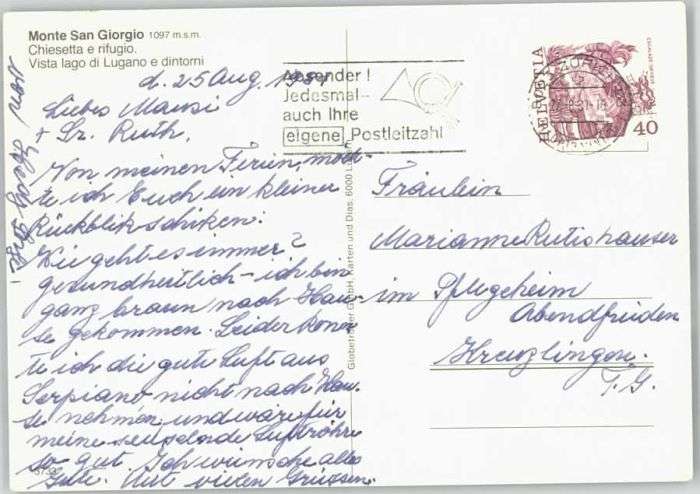 Monte San Giorgio 1097 m.s.m.
Chiesetta e rifugio.
Vista lago di Lugano e dintorni
d. 25 Aug. 1981
Liebes Mausi
+ Sr. Ruth,
Von meinen Ferien, möch-
te ich Euch ein kleiner
Rückblik schiken.
Wie geht es immer?
gesundheitlich - ich bin
ganz braun nach Hau-
se gekommen. Leider konn-
te ich die gute Luft aus
Serpiano nicht nach Hau-
se nehmen, und wäre für
meine Luftröhre
so gut. Ich wünsche alles
Gute. Mit vielen Grüssen.
Absender!
Jedesmal
auch Ihre
eigene Postleitzahl
HELVETIA
40
Globetrotter GmbH, Karten und Dias, 6000
Fräulein
Marianne Rutishauser
im Pflegeheim
Abendfrieden
Kreuzlingen.
T.G.